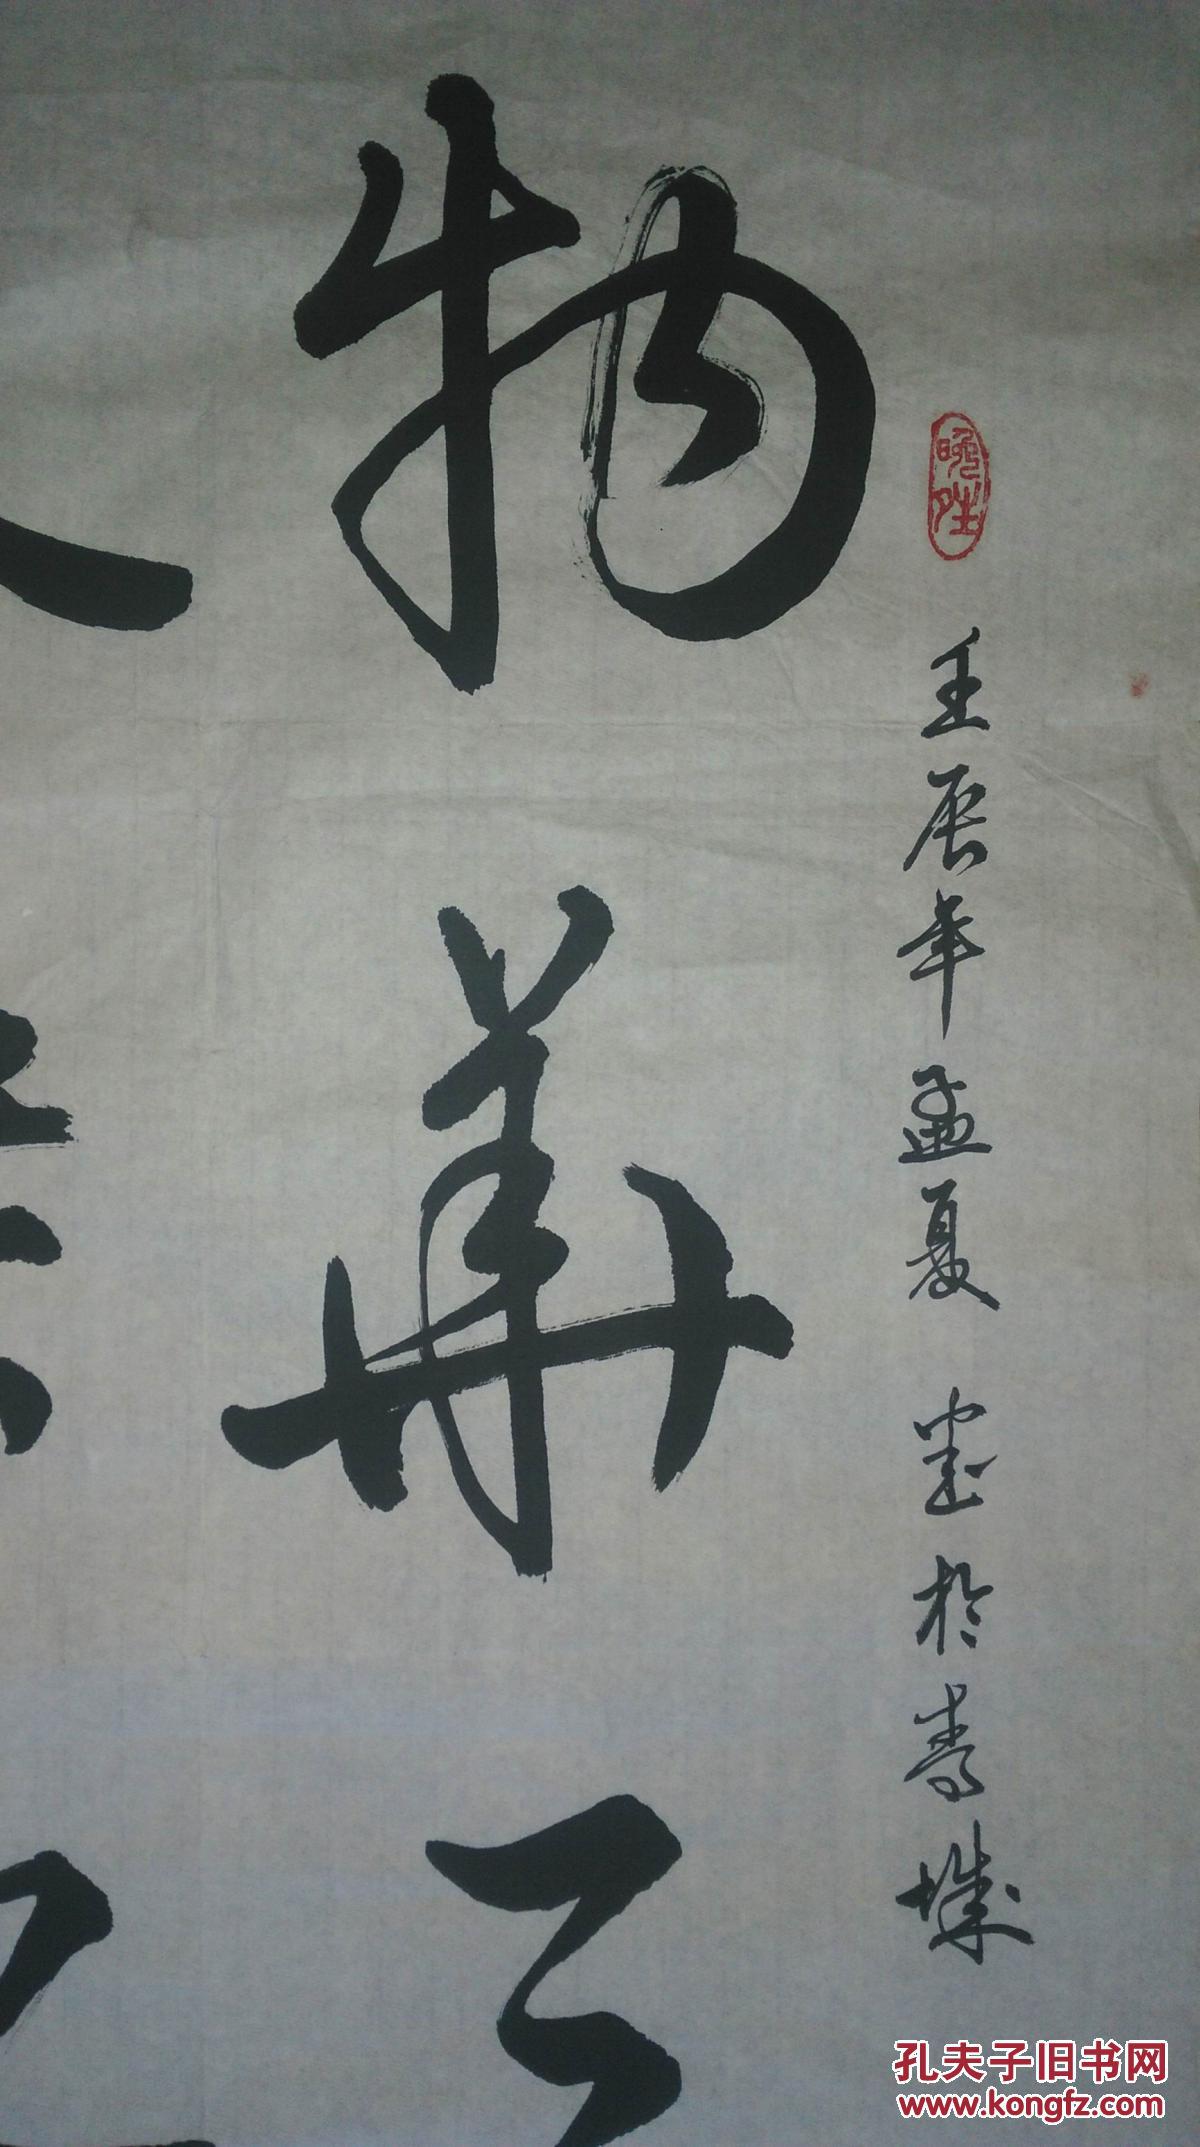 晚
壬辰年孟夏 於春城
物華
孔夫子旧书网
www.kongfz.com